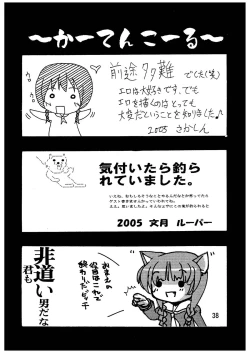 ～かーてんこーる～
前途多難 でした(笑)
エロは大好きです、でも
エロを描くのはとっても
大変だということを知りました♪
2005 さかしん
気付いたら釣ら
れていました。
2005 文月 ルーパー
非道い男だな
君も
おまえの
役目はこれで
終わりだビッチ
38